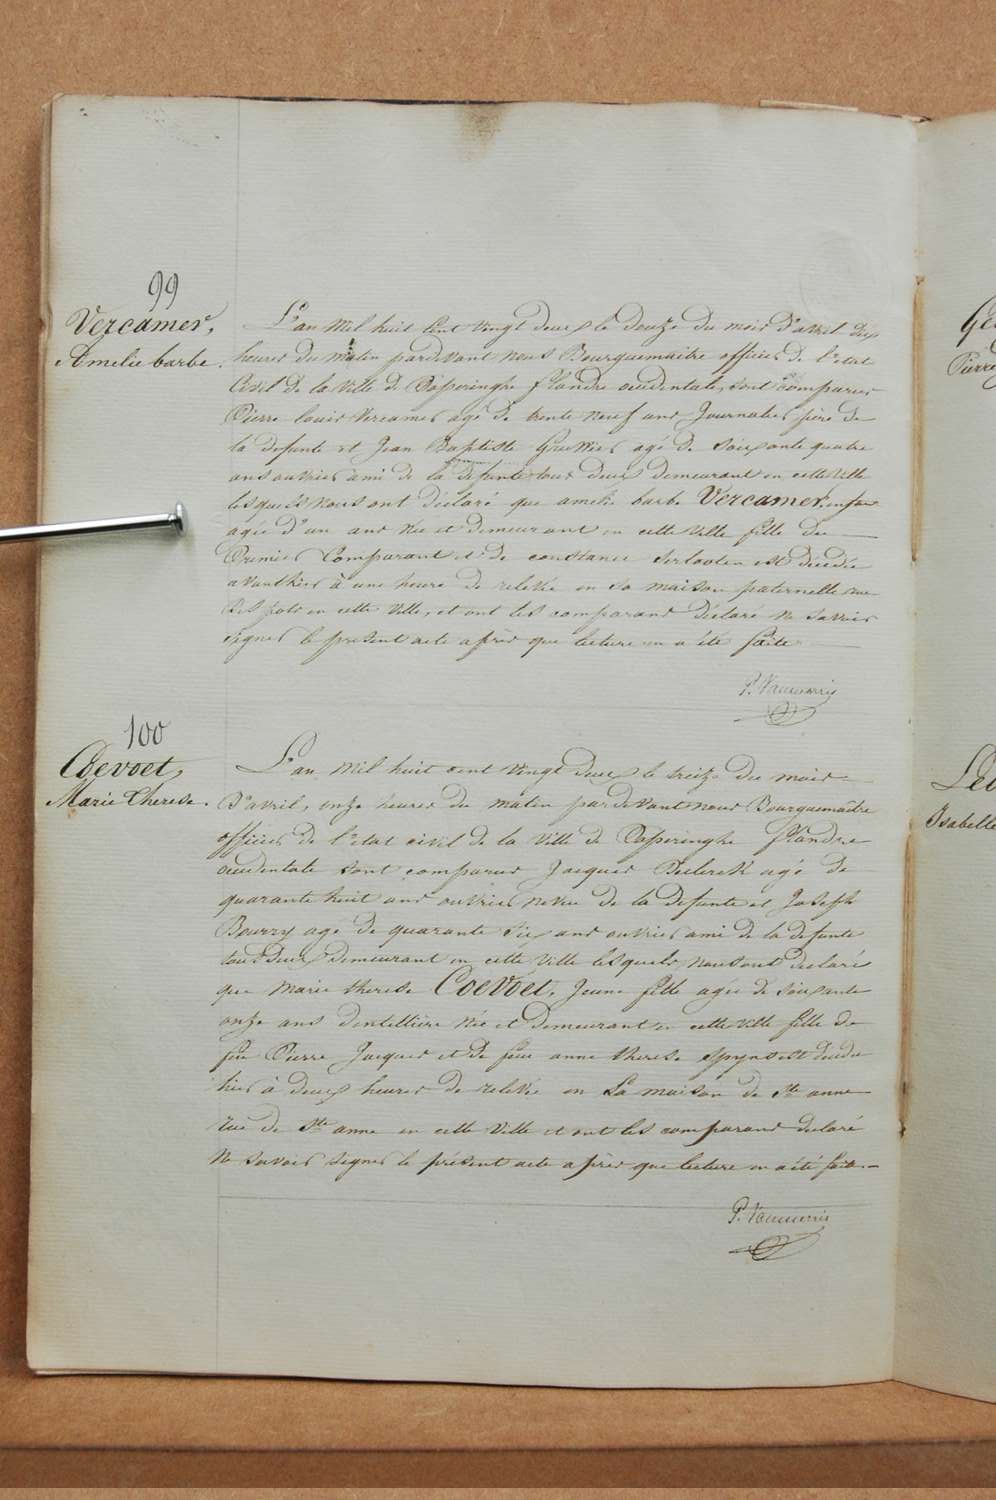 99
Vercamer,
Amelie barbe.
L'an Mil huit Cent vingt deux le Douze du mois d'avril dix
heures du matin pardevant nous Bourguemaitre officier de l'etat
Civil de la Ville de Poperinghe flandre occidentale, sont comparus
Pierre louis Vercamer agé de trente neuf ans Journalier père de
la defunte et Jean Baptiste agé de soixante quatre
ans ouvrier ami de la defunte tous deux demeurant en cette Ville
lesquels Nous ont déclaré que amelie barbe Vercamer, enfant
agée d'un ans Née et demeurant en cette Ville fille du
Premier Comparant et de constance est décédée
avanthier à une heure de relevée en sa maison paternelle rue
en cette Ville, et ont les comparans déclaré Ne savoir
signer le présent acte après que lecture en a été faite
100
Coevoet,
Marie Therese.
L'an Mil huit cent vingt deux le treize du mois
D'avril, onze heures du matin pardevant nous Bourguemaitre
officier de l'etat civil de la Ville de Poperinghe flandre
occidentale sont comparus Jacques agé de
quarante huit ans ouvrier Neveu de la defunte et Joseph
Bourry agé de quarante six ans ouvrier ami de la defunte
tous deux demeurant en cette Ville lesquels nous ont declaré
que Marie therese Coevoet, Jeune fille agée de soixante
onze ans dentellière Née et demeurant en cette ville fille de
feu Pierre Jacques et de feue anne therese est décédée
hier à deux heures de relevée en La maison de Ste anne
rue de Ste anne en cette Ville et ont les comparans declaré
Ne savoir signer le présent acte après que lecture en a été faite.